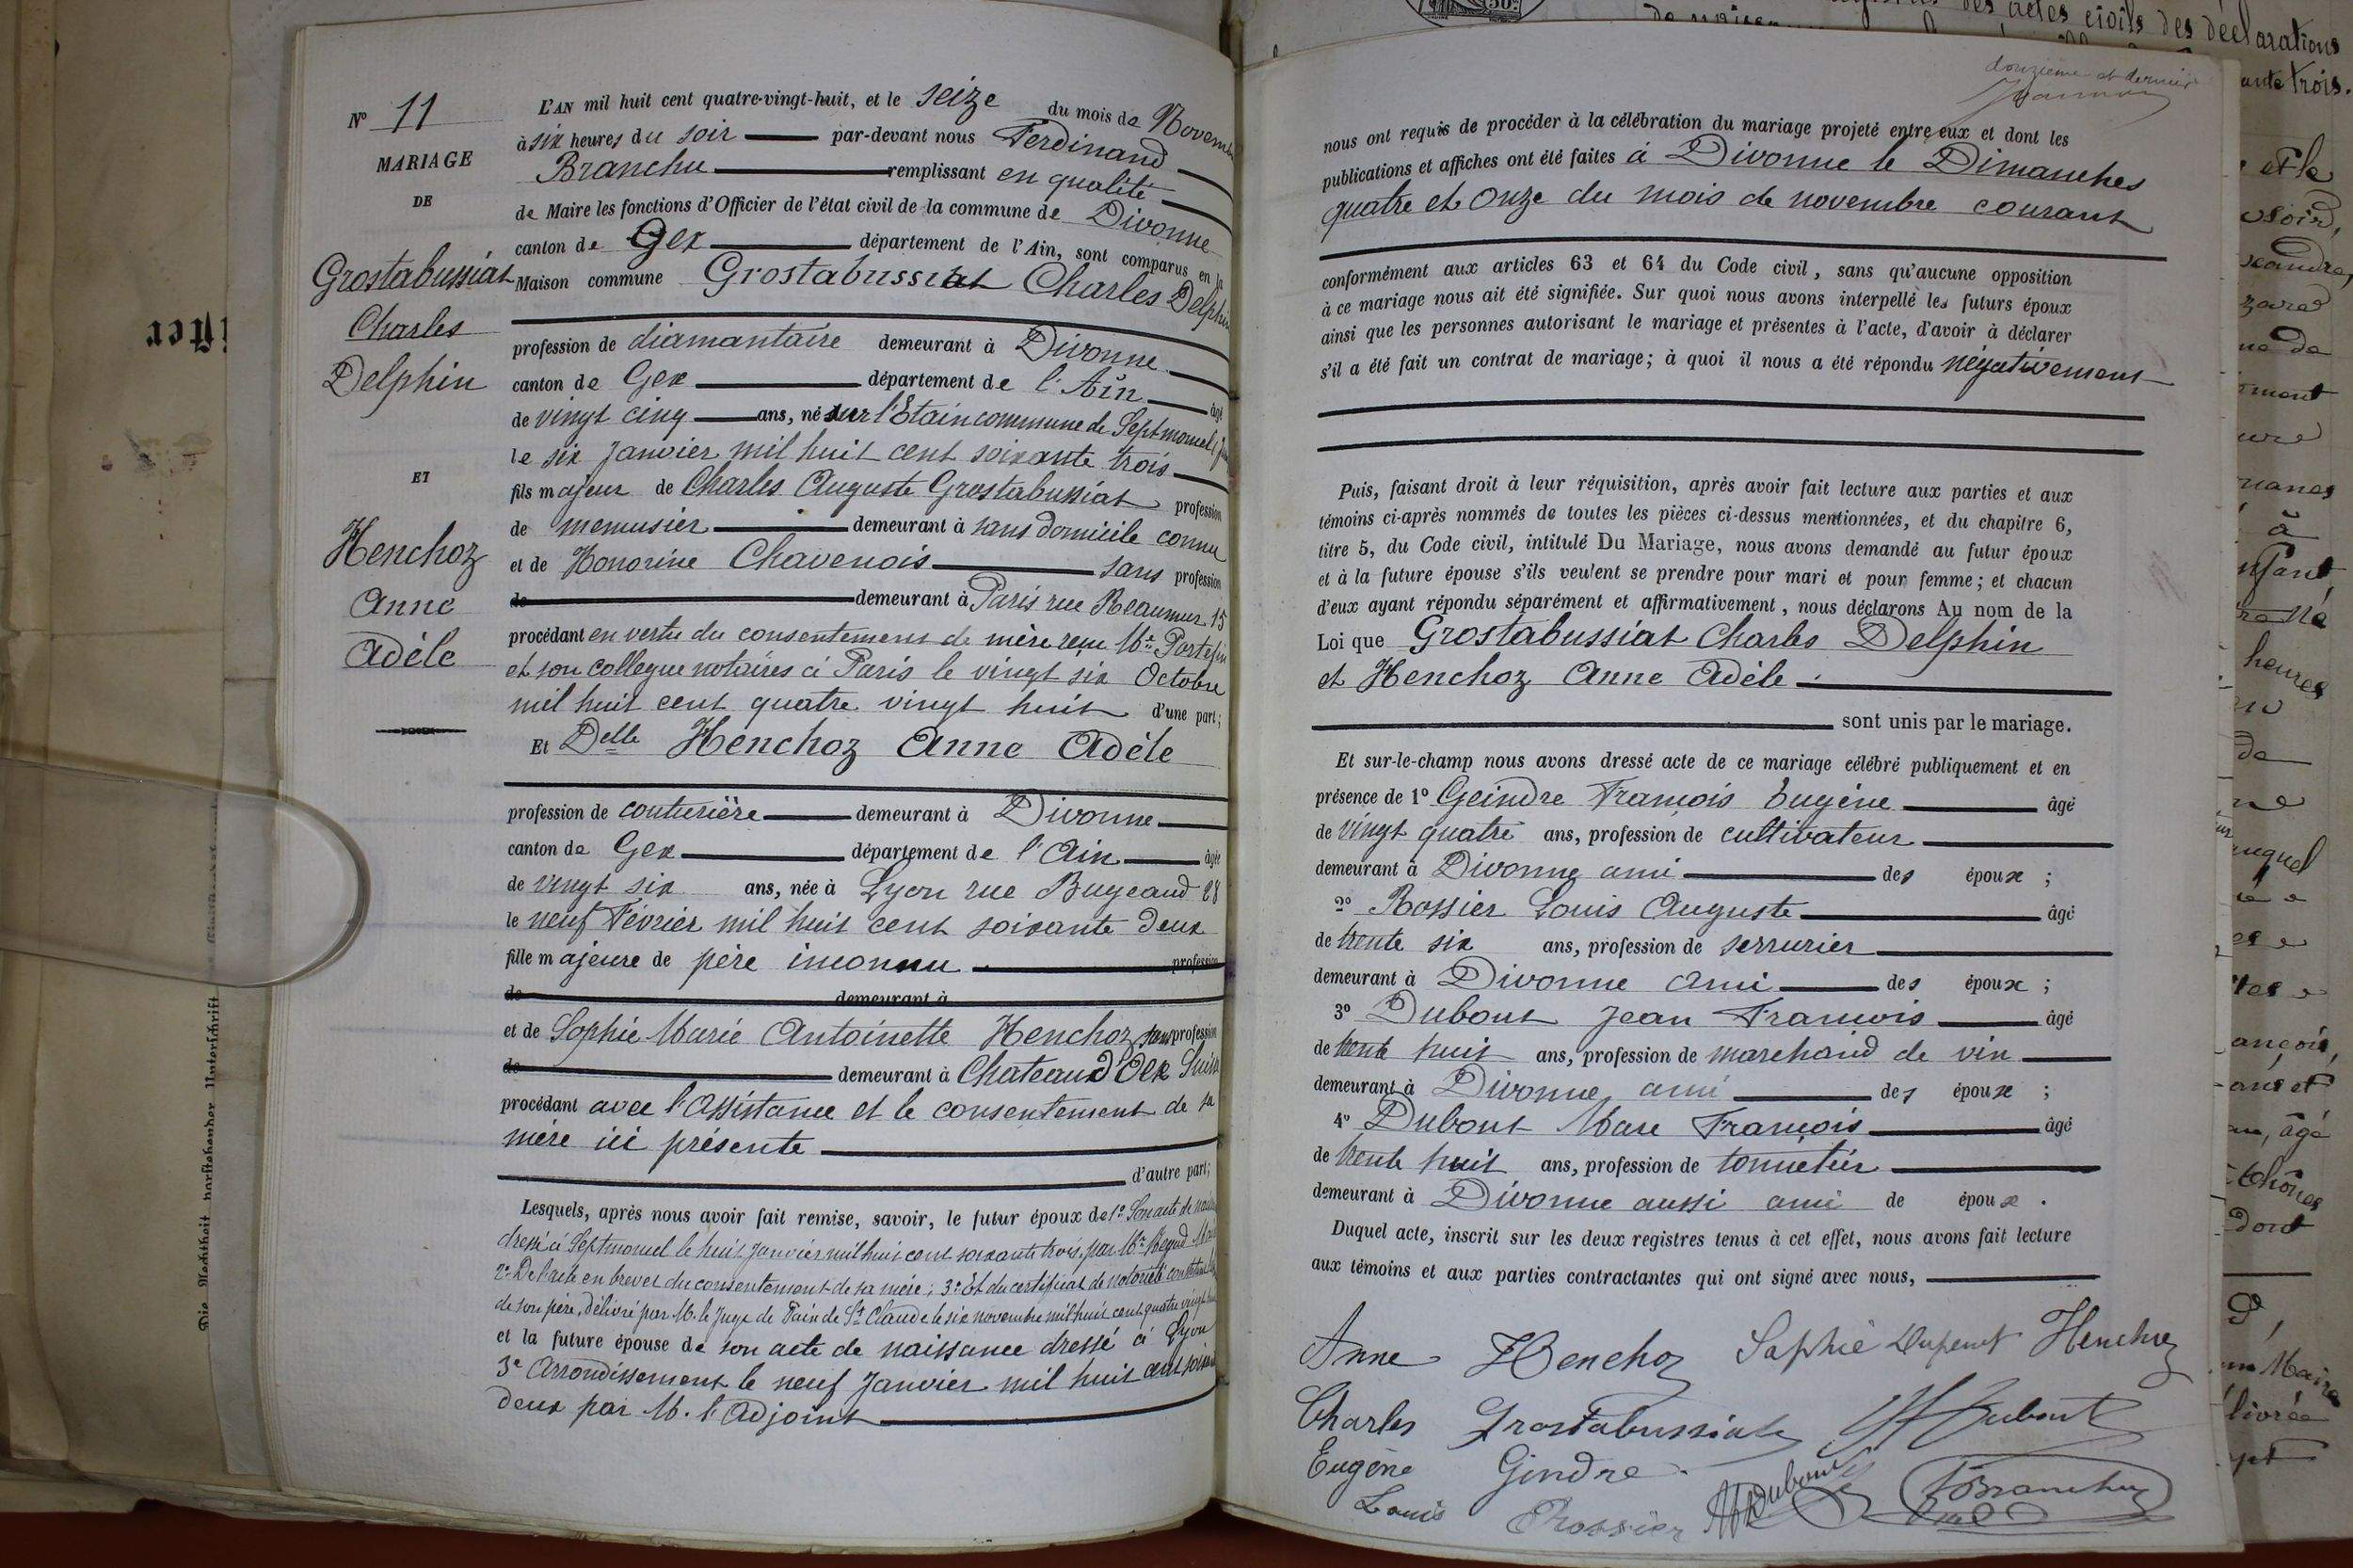 Nº 11
MARIAGE
DE
Grostabussiat
Charles
Delphin
ET
Henchoz
Anne
Adèle
L'AN mil huit cent quatre-vingt-huit, et le seize du mois de Novembre
à six heures du soir par-devant nous Ferdinand
Branchu remplissant en qualité
de Maire les fonctions d'Officier de l'état civil de la commune de Divonne
canton de Gex département de l'Ain, sont comparus en la
Maison commune Grostabussiat Charles Delphin
profession de diamantaire demeurant à Divonne
canton de Gex département de l'Ain âgé
de vingt cinq ans, né sur l'Etain commune de Septmoncel
le six Janvier mil huit cent soixante trois
fils majeur de Charles Auguste Grostabussiat profession
de menusier demeurant à sans domicile connu
et de Honorine Chavenois sans profession
de demeurant à Paris rue Reaumur 15
procédant en vertu du consentement de mère reçu Me Portefin
et son collegue notaires à Paris le vingt six Octobre
mil huit cent quatre vingt huit d'une part;
Et Delle Henchoz Anne Adèle
profession de couturière demeurant à Divonne
canton de Gex département de l'Ain âgée
de vingt six ans, née à Lyon rue Bugeaud 28
le neuf Février mil huit cent soixante deux
fille majeure de père inconnu profession
de demeurant à
et de Sophie Marie Antoinette Henchoz sans profession
de demeurant à Chateau d'Oex Suisse
procédant avec l'assistance et le consentement de sa
mère ici présente
d'autre part;
Lesquels, après nous avoir fait remise, savoir, le futur époux de 1º Son acte de
dressé à Septmoncel le huit Janvier mil huit cent soixante trois, par Mr Regad
2º De l'acte en brevet du consentement de sa mère; 3º Et du certificat de notoriété
de son père, délivré par M. le Juge de Paix de St Claude le six novembre mil huit cent quatre vingt
et la future épouse de son acte de naissance dressé à Lyon
3e Arrondissement le neuf Janvier mil huit cent
deux par M. l'Adjoint
douzième et dernier
nous ont requis de procéder à la célébration du mariage projeté entre eux et dont les
publications et affiches ont été faites à Divonne le Dimanches
quatre et onze du mois de novembre courant
conformément aux articles 63 et 64 du Code civil, sans qu'aucune opposition
à ce mariage nous ait été signifiée. Sur quoi nous avons interpellé les futurs époux
ainsi que les personnes autorisant le mariage et présentes à l'acte, d'avoir à déclarer
s'il a été fait un contrat de mariage; à quoi il nous a été répondu négativement
Puis, faisant droit à leur réquisition, après avoir fait lecture aux parties et aux
témoins ci-après nommés de toutes les pièces ci-dessus mentionnées, et du chapitre 6,
titre 5, du Code civil, intitulé Du Mariage, nous avons demandé au futur époux
et à la future épouse s'ils veulent se prendre pour mari et pour femme; et chacun
d'eux ayant répondu séparément et affirmativement, nous déclarons Au nom de la
Loi que Grostabussiat Charles Delphin
et Henchoz Anne Adèle
sont unis par le mariage.
Et sur-le-champ nous avons dressé acte de ce mariage célébré publiquement et en
présence de 1º Geindre François Eugène âgé
de vingt quatre ans, profession de cultivateur
demeurant à Divonne ami des époux ;
2º Rossier Louis Auguste âgé
de trente six ans, profession de serrurier
demeurant à Divonne ami des époux ;
3º Dubout Jean François âgé
de trente huit ans, profession de marchand de vin
demeurant à Divonne ami des époux ;
4º Dubout Marc François âgé
de trente huit ans, profession de tonnetier
demeurant à Divonne aussi ami de époux .
Duquel acte, inscrit sur les deux registres tenus à cet effet, nous avons fait lecture
aux témoins et aux parties contractantes qui ont signé avec nous,
Anne Henchoz Sophie Henchoz
Charles Grostabussiat Dubout
Eugène Gindre
Louis Rossier Dubout Branchu